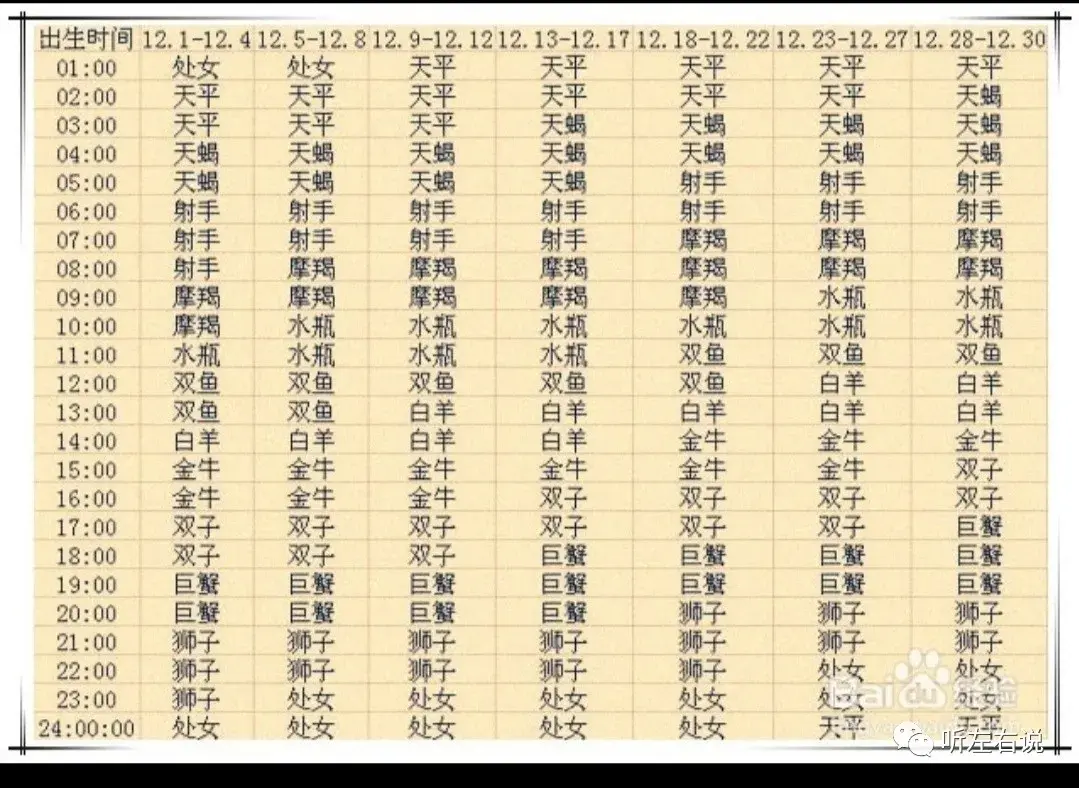 出生时间 12.1-12.4 12.5-12.8 12.9-12.12 12.13-12.17 12.18-12.22 12.23-12.27 12.28-12.30
01:00 处女 处女 天平 天平 天平 天平 天平
02:00 天平 天平 天平 天平 天平 天平 天蝎
03:00 天平 天平 天平 天蝎 天蝎 天蝎 天蝎
04:00 天蝎 天蝎 天蝎 天蝎 天蝎 天蝎 天蝎
05:00 天蝎 天蝎 天蝎 天蝎 射手 射手 射手
06:00 射手 射手 射手 射手 射手 射手 射手
07:00 射手 射手 射手 射手 摩羯 摩羯 摩羯
08:00 射手 摩羯 摩羯 摩羯 摩羯 摩羯 摩羯
09:00 摩羯 摩羯 摩羯 摩羯 摩羯 水瓶 水瓶
10:00 摩羯 水瓶 水瓶 水瓶 水瓶 水瓶 水瓶
11:00 水瓶 水瓶 水瓶 水瓶 双鱼 双鱼 双鱼
12:00 双鱼 双鱼 双鱼 双鱼 双鱼 白羊 白羊
13:00 双鱼 双鱼 白羊 白羊 白羊 白羊 白羊
14:00 白羊 白羊 白羊 白羊 金牛 金牛 金牛
15:00 金牛 金牛 金牛 金牛 金牛 金牛 双子
16:00 金牛 金牛 金牛 双子 双子 双子 双子
17:00 双子 双子 双子 双子 双子 双子 巨蟹
18:00 双子 双子 双子 巨蟹 巨蟹 巨蟹 巨蟹
19:00 巨蟹 巨蟹 巨蟹 巨蟹 巨蟹 巨蟹 巨蟹
20:00 巨蟹 巨蟹 巨蟹 巨蟹 狮子 狮子 狮子
21:00 狮子 狮子 狮子 狮子 狮子 狮子 狮子
22:00 狮子 狮子 狮子 狮子 狮子 处女 处女
23:00 狮子 处女 处女 处女 处女 处女 处女
24:00:00 处女 处女 处女 处女 处女 天平 天平
Bai du 经验
听左右说